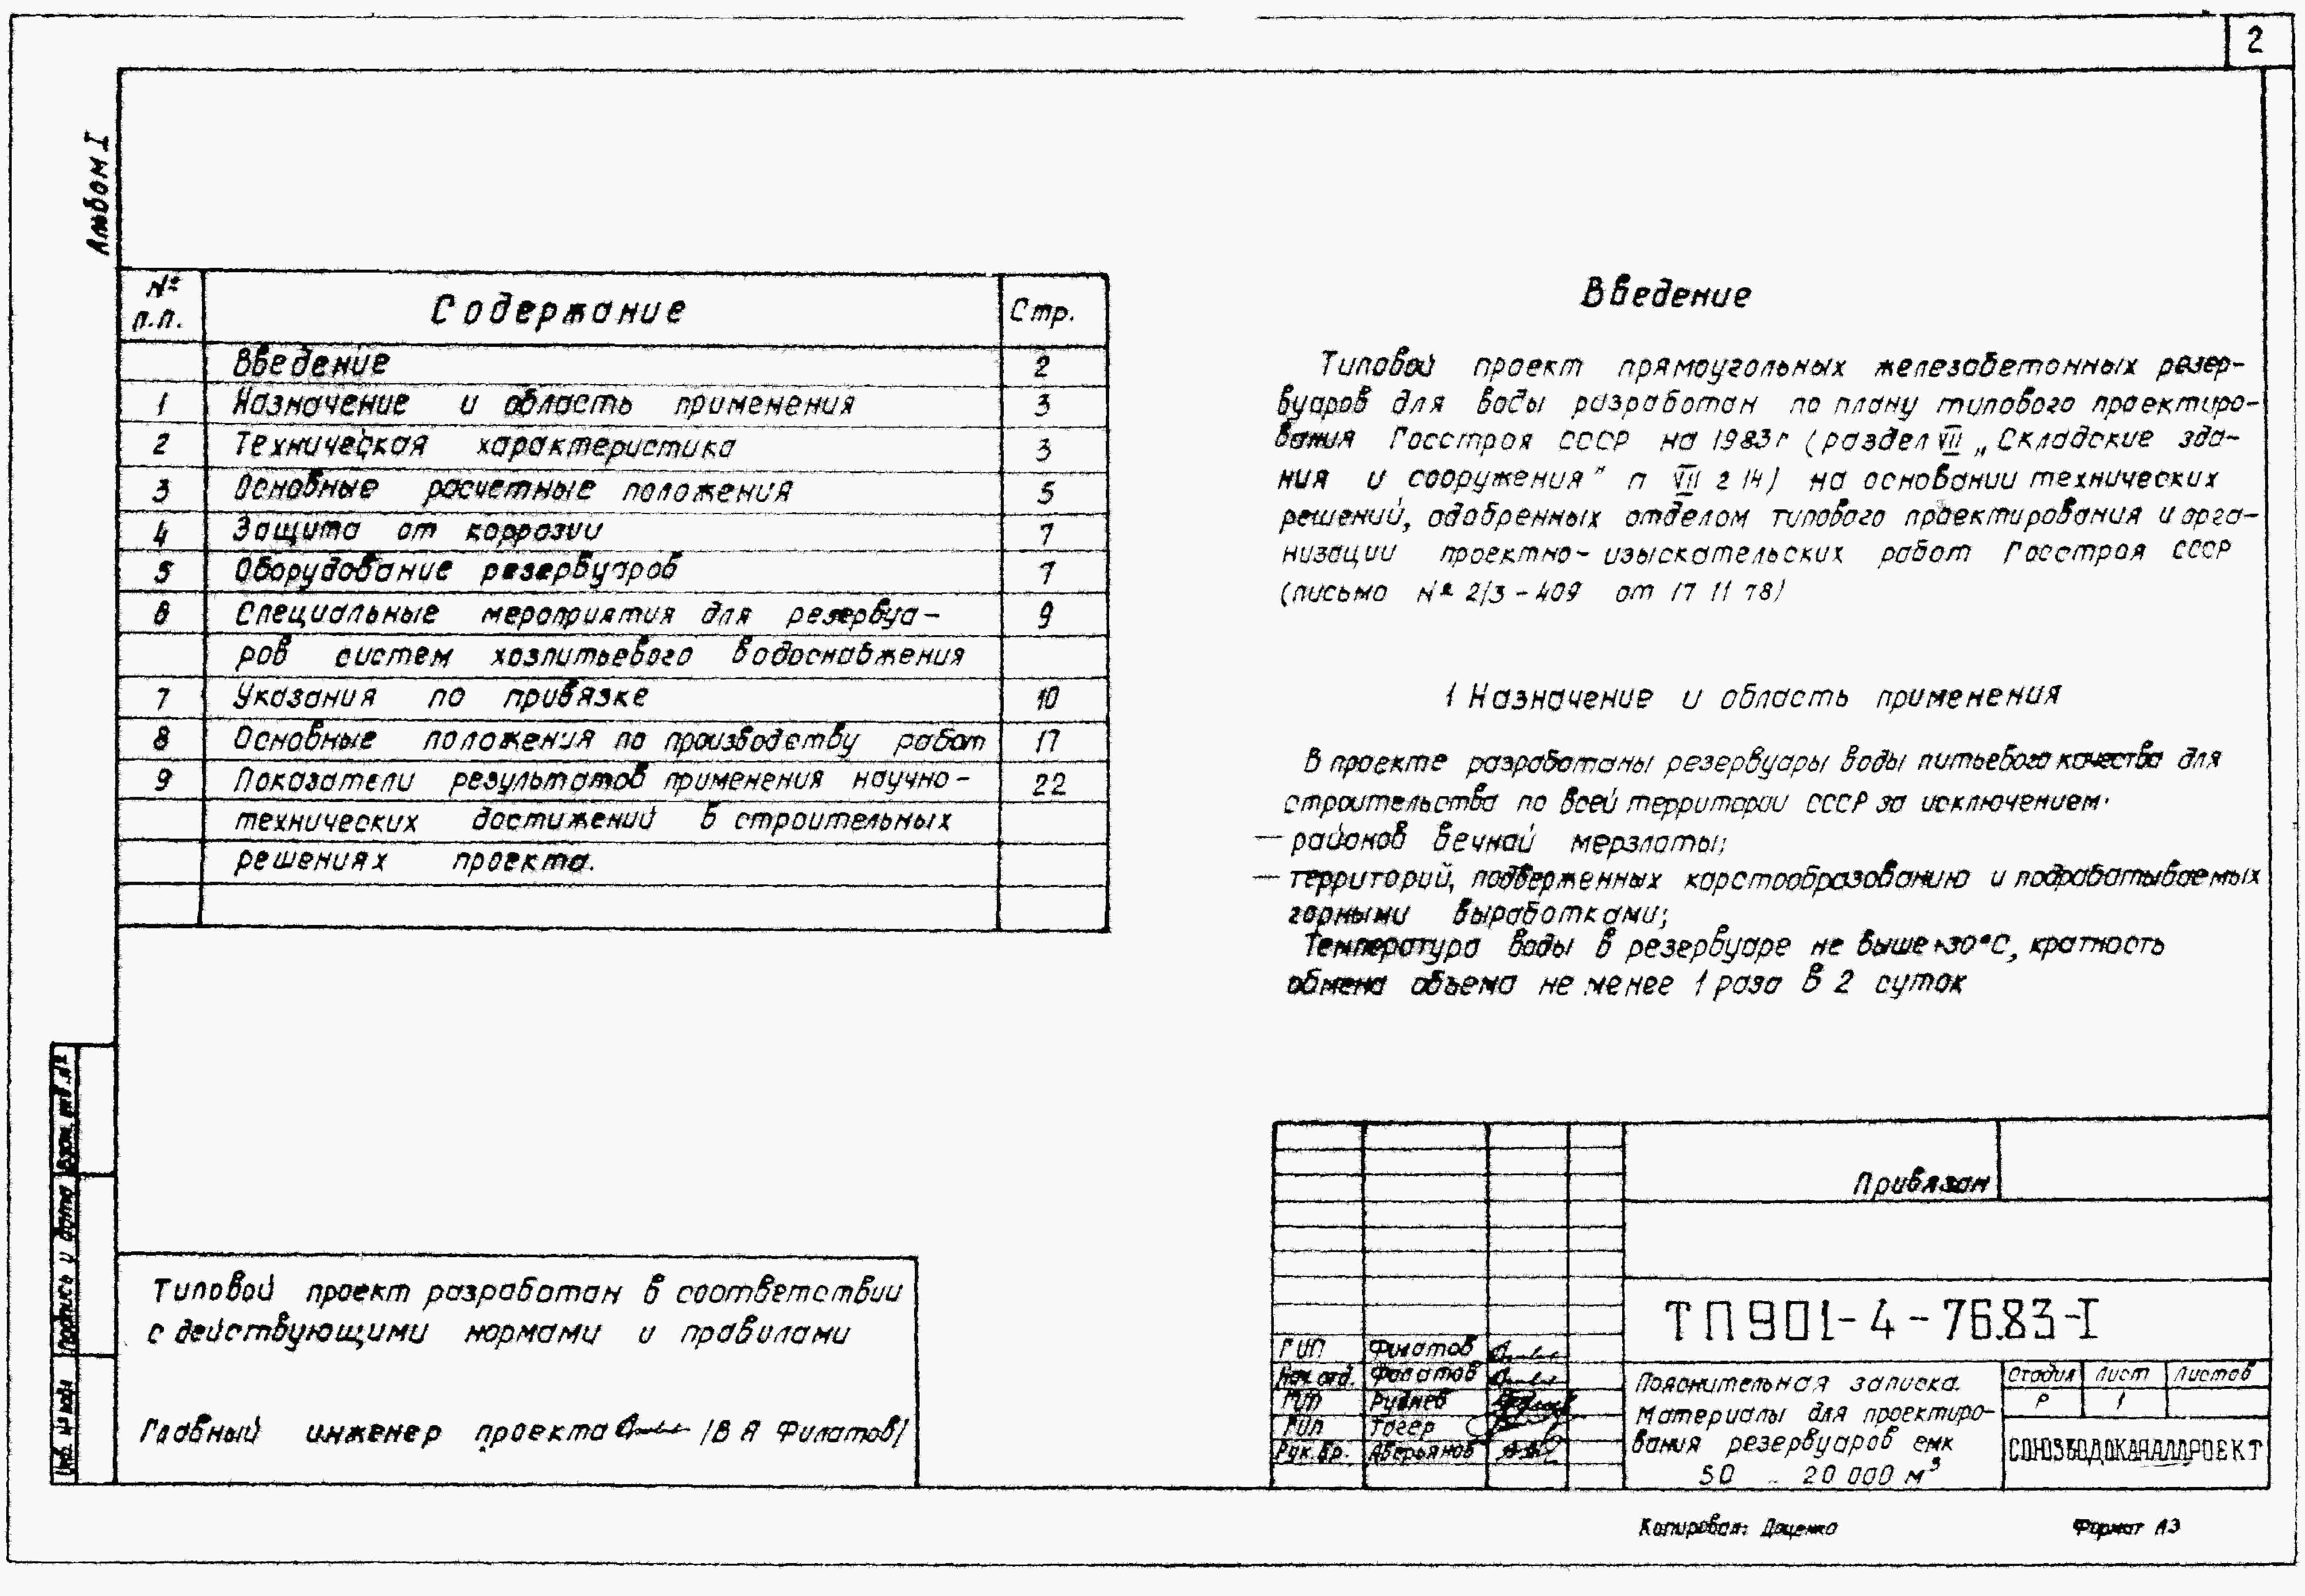 2
Альбом I
№ п.п. Содержание Стр.
Введение 2
1 Назначение и область применения 3
2 Техническая характеристика 3
3 Основные расчетные положения 5
4 Защита от коррозии 7
5 Оборудование резервуаров 7
6 Специальные мероприятия для резервуа- 9
ров систем хозпитьевого водоснабжения
7 Указания по привязке 10
8 Основные положения по производству работ 17
9 Показатели результатов применения научно- 22
технических достижений в строительных
решениях проекта.
Введение
Типовой проект прямоугольных железобетонных резер-
вуаров для воды разработан по плану типового проектиро-
вания Госстроя СССР на 1983г (раздел VII „Складские зда-
ния и сооружения" п VII 2 14) на основании технических
решений, одобренных отделом типового проектирования и орга-
низации проектно-изыскательских работ Госстроя СССР
(письмо № 2/3-409 от 17 11 78)
1 Назначение и область применения
В проекте разработаны резервуары воды питьевого качества для
строительства по всей территории СССР за исключением.
— районов вечной мерзлоты;
— территорий, подверженных карстообразованию и подрабатываемых
горными выработками;
Температура воды в резервуаре не выше +30°С, кратность
обмена объема не менее 1 раза в 2 суток
Типовой проект разработан в соответствии
с действующими нормами и правилами
Главный инженер проекта /В Я Филатов/
Инв. № подл Подпись и дата Взам. инв. №
Привязан
ТП901-4-76.83-I
ГИП Филатов
Нач. отд. Филатов
ГИП Руднев
ГИП Тагер
Рук. бр. Аверьянов
Пояснительная записка.
Материалы для проектиро-
вания резервуаров емк
50 .. 20 000 м³
Стадия Лист Листов
Р 1
СОЮЗВОДОКАНАЛПРОЕКТ
Копировал: Доценко Формат А3